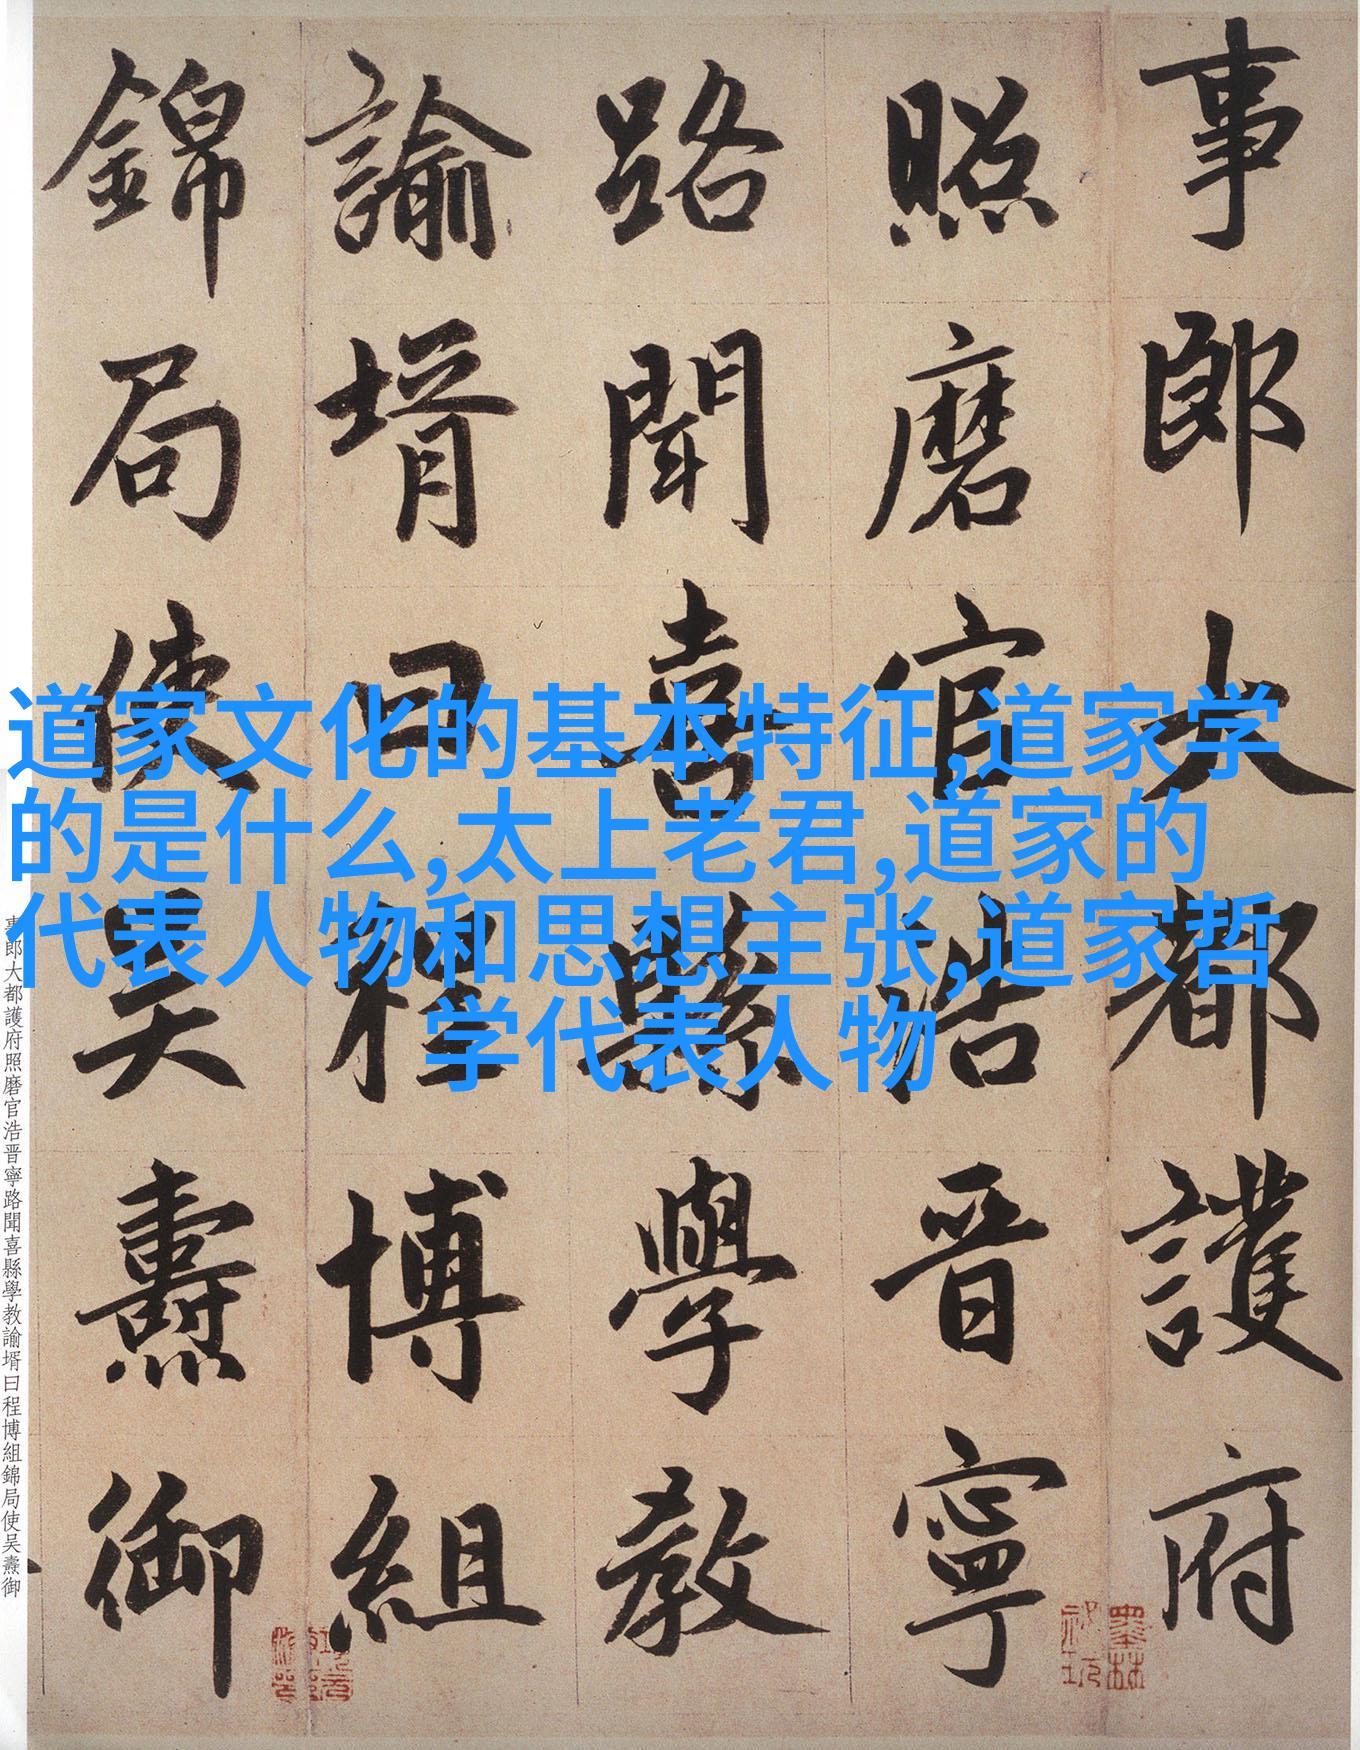 事郎大都護府
照磨官浩晋寧
路聞喜縣學教
諭壻曰程博組
錦局使吴燾御
道家文化的基本特征,道家学
的是什么,太上老君,道家的
代表人物和思想主张,道家哲
学代表人物
事郎大都護府照磨官浩晋寧路聞喜縣學教諭壻曰程博組錦局使吴燾御